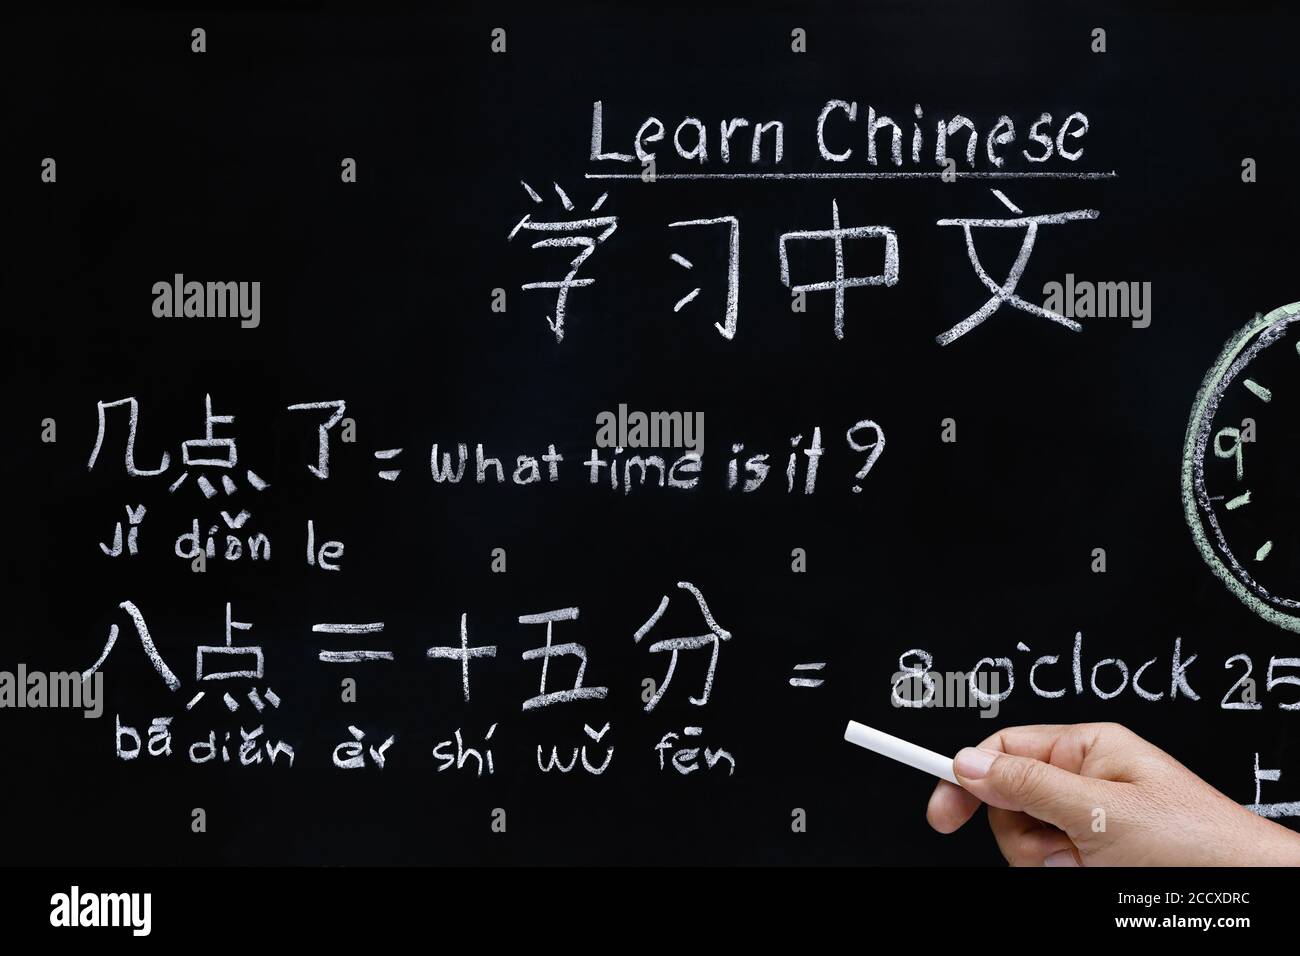 Learn Chinese
学习中文
几点了 = What time is it?
jǐ diǎn le
八点二十五分 = 8 o'clock 25
bā diǎn èr shí wǔ fēn
9
上
alamy
Image ID: 2CCXDRC
www.alamy.com